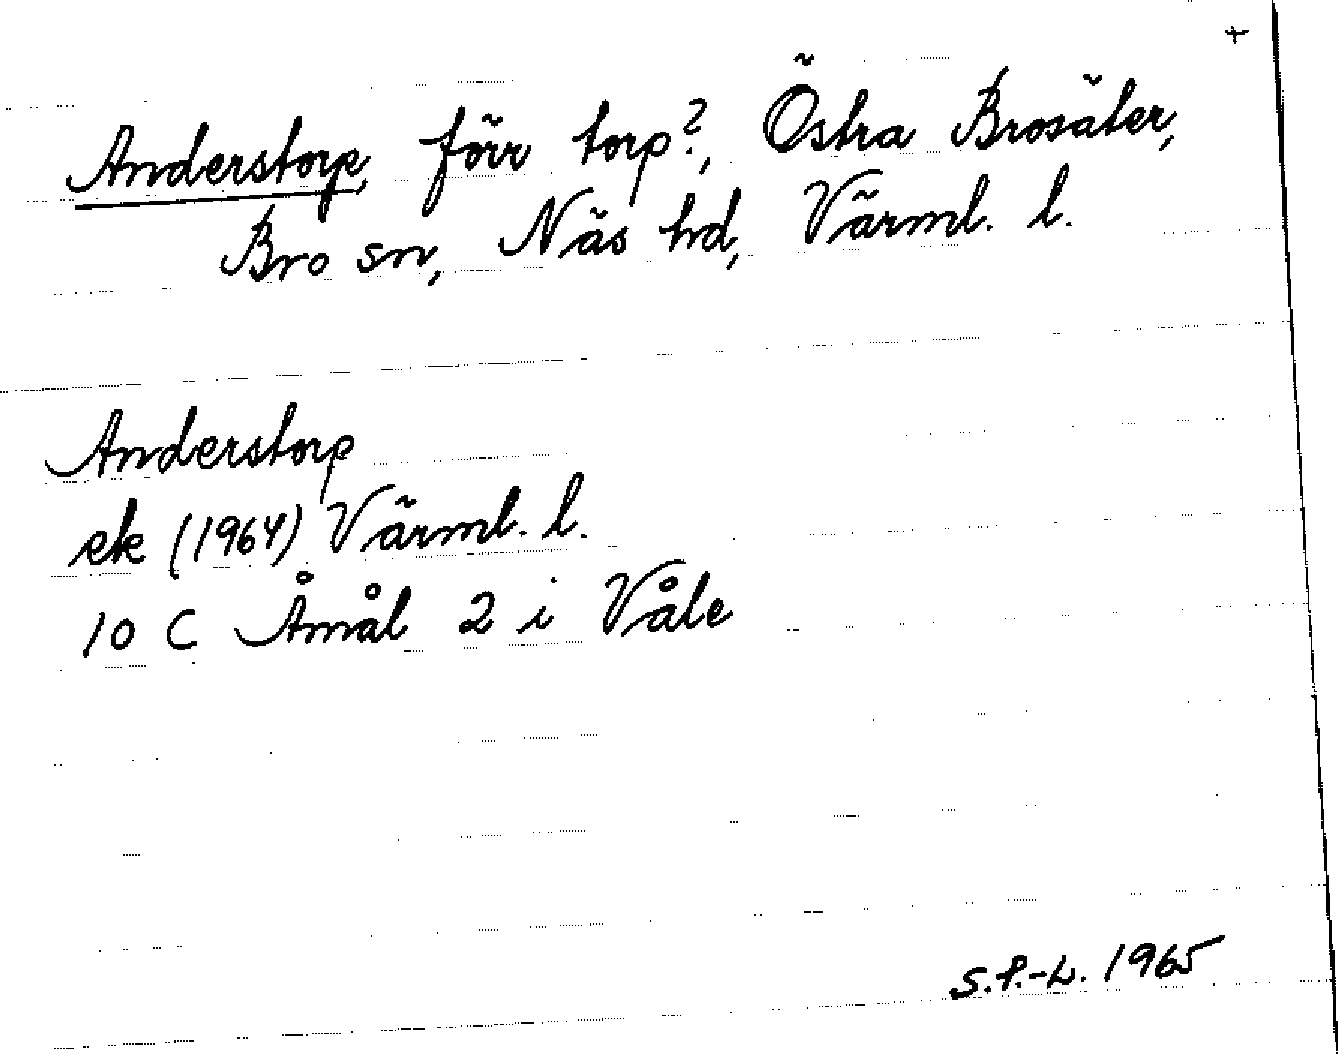 +
Anderstorp, förr torp?, Östra Brosäter,
Bro sn, Näs hd, Värml. l.
Anderstorp
ek (1964) Värml. l.
10 C Åmål 2 i Våle
S.P.-L. 1965